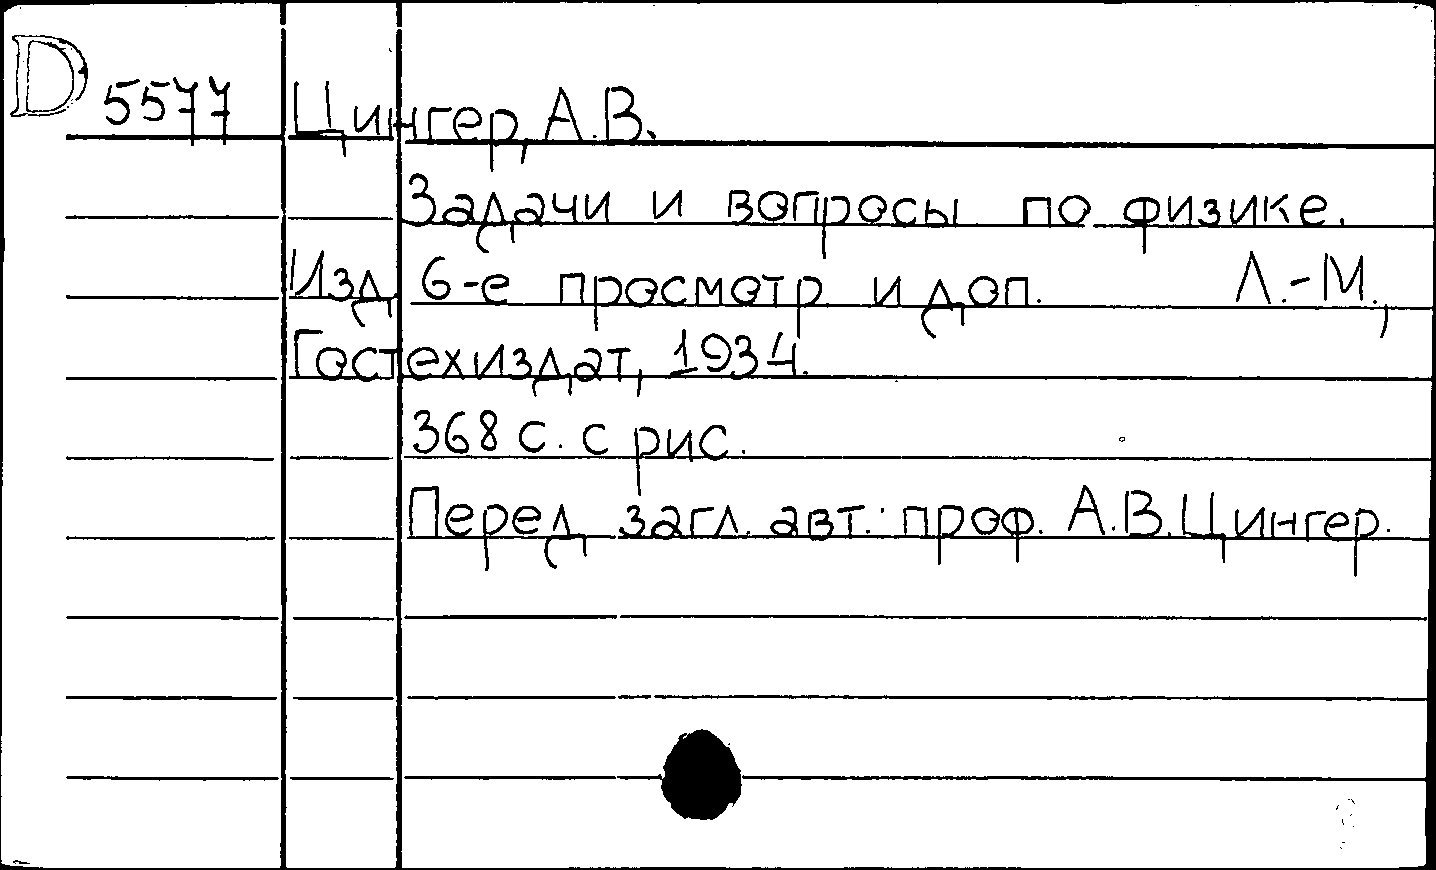 D 5577 Цингер, А.В.
Задачи и вопросы по физике.
Изд. 6-е просмотр и доп. Л.-М.,
Гостехиздат, 1934.
368 с. с рис.
Перед загл. авт.: проф. А.В.Цингер.